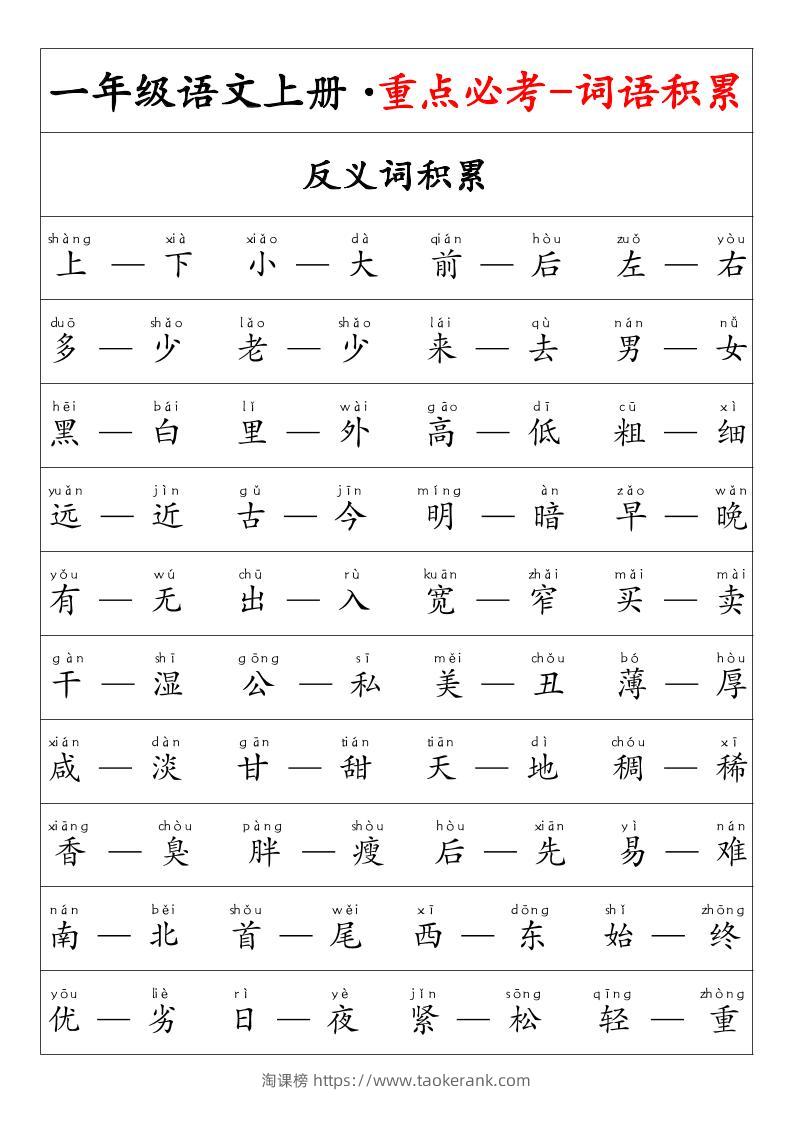 一年级语文上册·重点必考-词语积累
反义词积累
shàng xià xiǎo dà qián hòu zuǒ yòu
上 — 下 小 — 大 前 — 后 左 — 右
duō shǎo lǎo shǎo lái qù nán nǚ
多 — 少 老 — 少 来 — 去 男 — 女
hēi bái lǐ wài gāo dī cū xì
黑 — 白 里 — 外 高 — 低 粗 — 细
yuǎn jìn gǔ jīn míng àn zǎo wǎn
远 — 近 古 — 今 明 — 暗 早 — 晚
yǒu wú chū rù kuān zhǎi mǎi mài
有 — 无 出 — 入 宽 — 窄 买 — 卖
gàn shī gōng sī měi chǒu bó hòu
干 — 湿 公 — 私 美 — 丑 薄 — 厚
xián dàn gān tián tiān dì chóu xī
咸 — 淡 甘 — 甜 天 — 地 稠 — 稀
xiāng chòu pàng shòu hòu xiān yì nán
香 — 臭 胖 — 瘦 后 — 先 易 — 难
nán běi shǒu wěi xī dōng shǐ zhōng
南 — 北 首 — 尾 西 — 东 始 — 终
yōu liè rì yè jǐn sōng qīng zhòng
优 — 劣 日 — 夜 紧 — 松 轻 — 重
淘课榜 https://www.taokerank.com